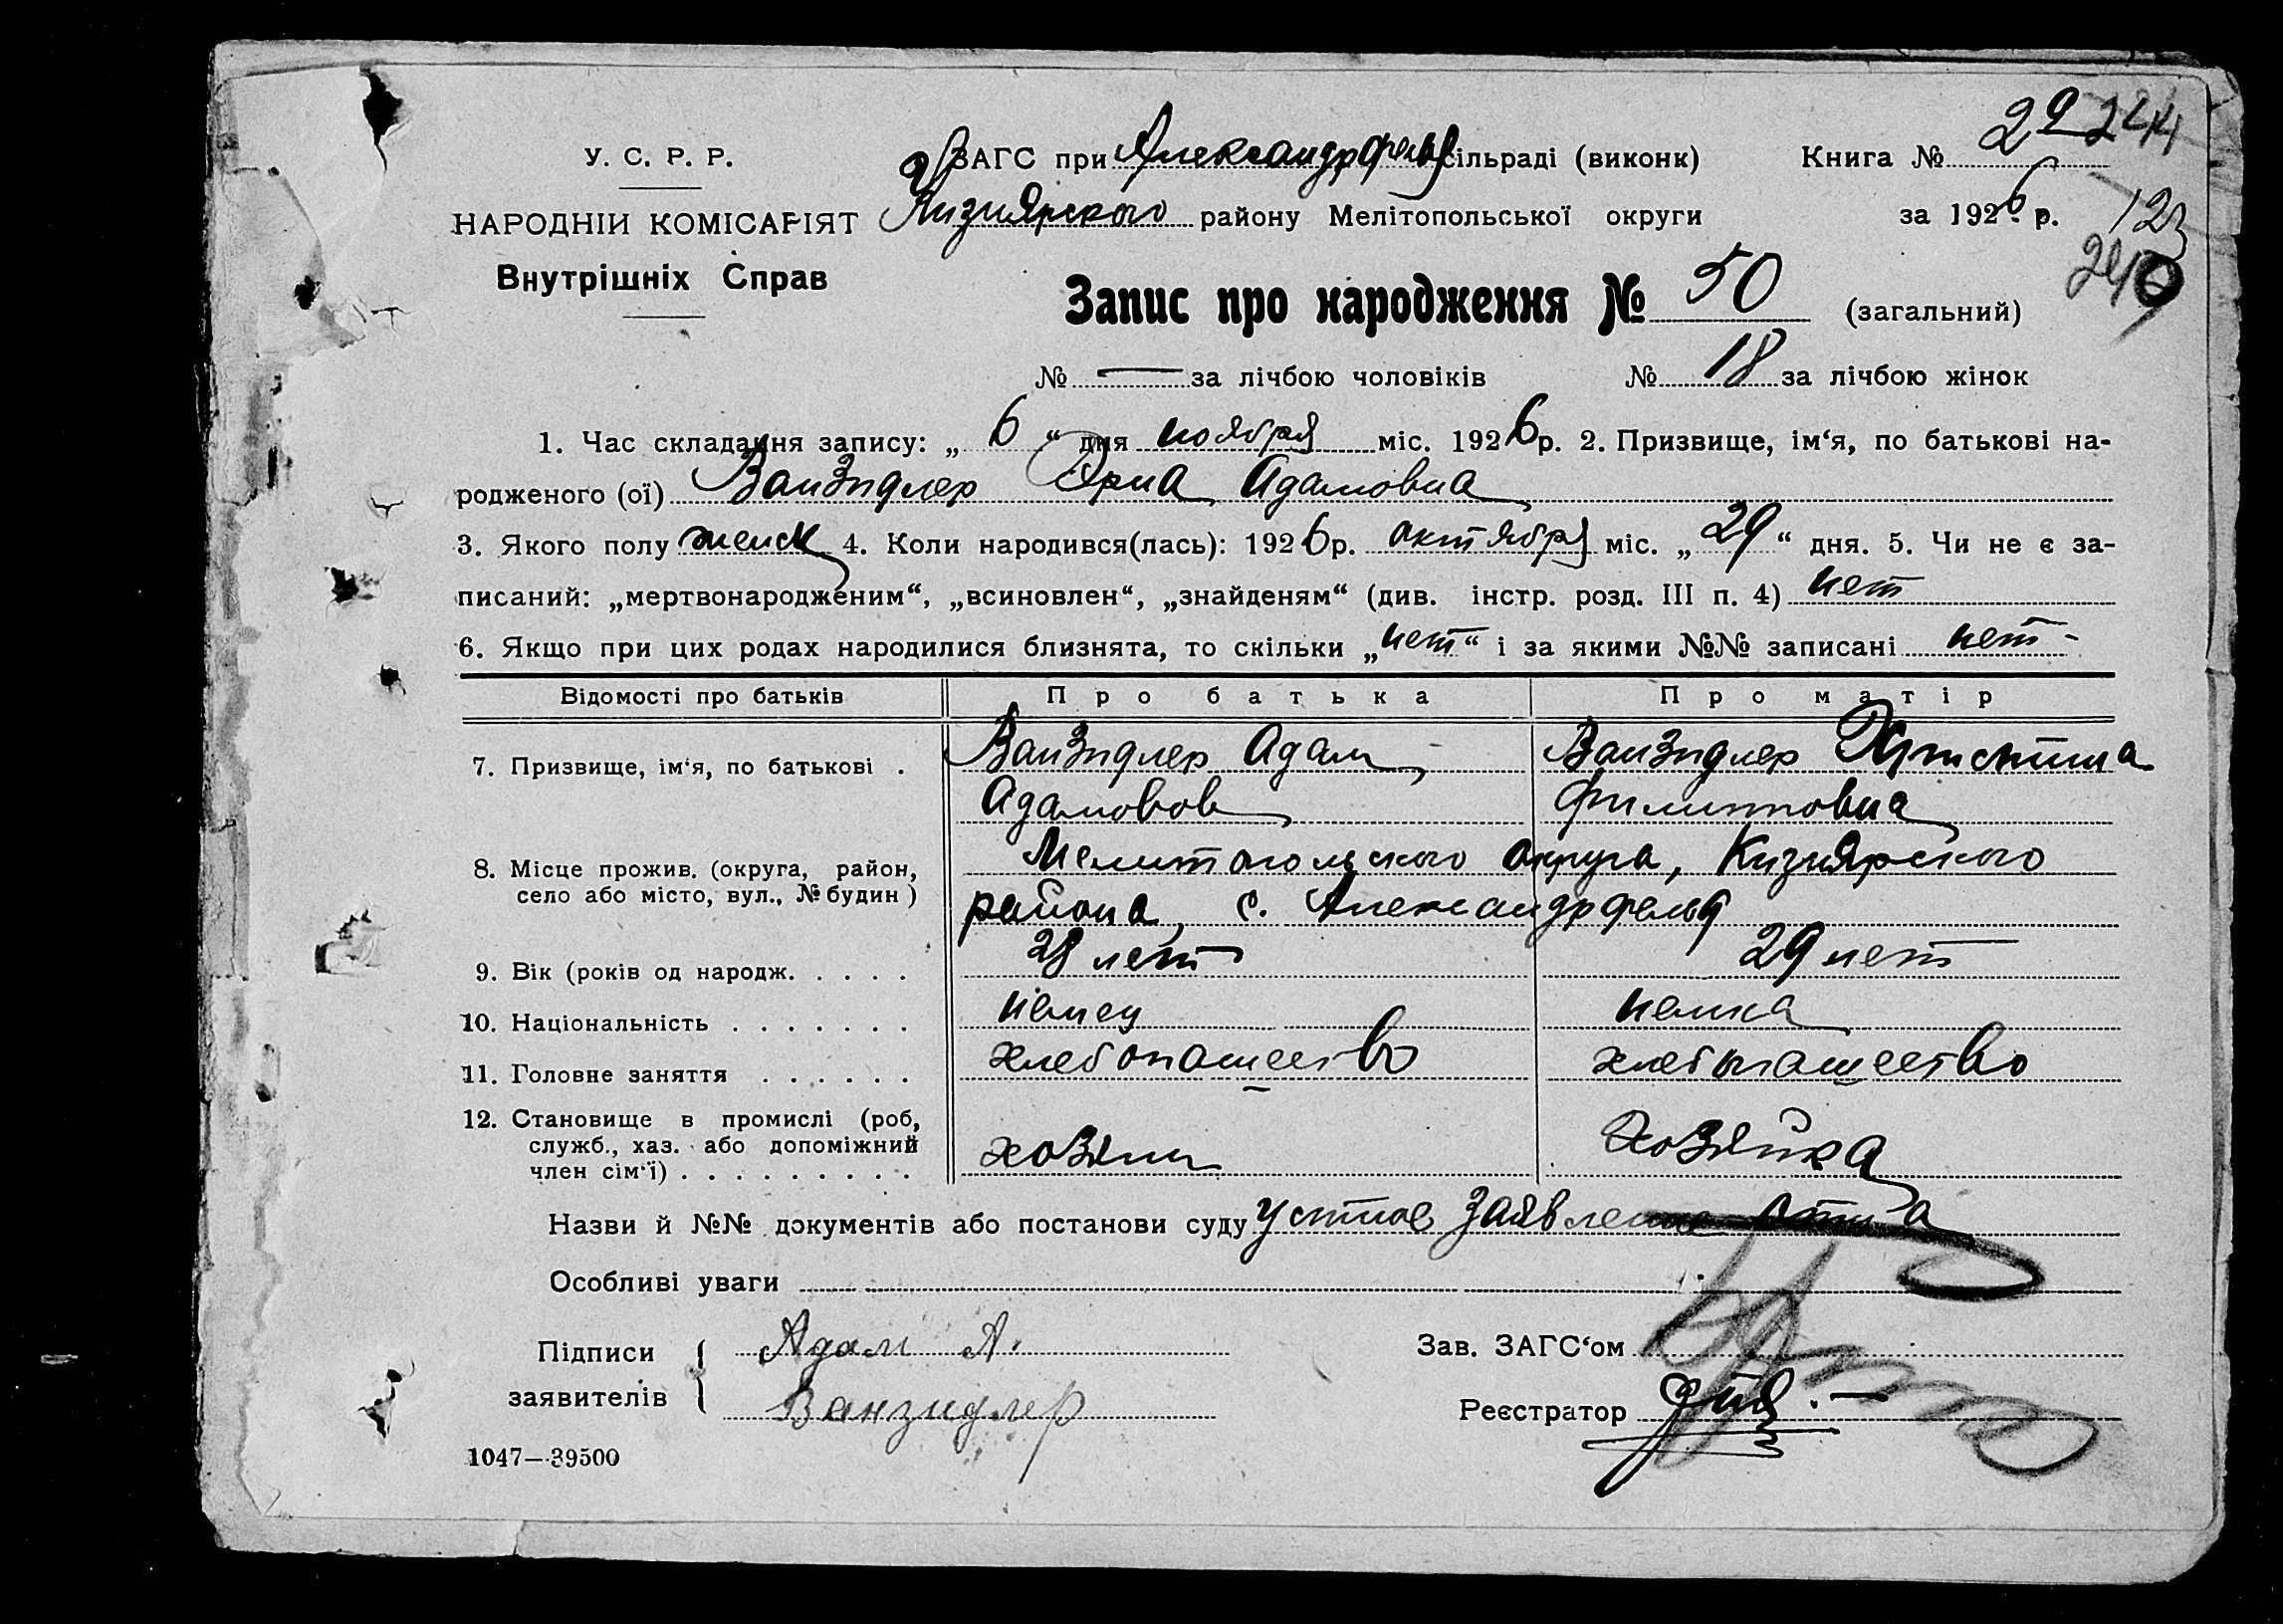 У. С. Р. Р.
НАРОДНІЙ КОМІСАРІЯТ
Внутрішніх Справ
ЗАГС при Александрфельд сільраді (виконк)
Кизиярского району Мелітопольської округи
Книга № 29 244
за 1926 р.
123
240
Запис про народження № 50 (загальний)
№ — за лічбою чоловіків № 18 за лічбою жінок
1. Час складання запису: „ 6 “ дня ноября міс. 1926 р. 2. Призвище, ім‘я, по батькові на-
родженого (ої) Ванзидлер Эрна Адамовна
3. Якого полу женск 4. Коли народився(лась): 1926 р. октября міс. „ 29 “ дня. 5. Чи не є за-
писаний: „мертвонародженим“, „всиновлен“, „знайденям“ (див. інстр. розд. III п. 4) нет
6. Якщо при цих родах народилися близнята, то скільки „ нет “ і за якими №№ записані нет -
Відомості про батьків Про батька Про матір
7. Призвище, ім‘я, по батькові . Ванзидлер Адам Ванзидлер Христина
Адамовов Филипповна
8. Місце прожив. (округа, район,
село або місто, вул., № будин ) Мелитопольского округа, Кизиярского
района, с. Александрфельд
9. Вік (років од народж. . . . . 28 лет 29 лет
10. Національність . . . . . . . немец немка
11. Головне заняття . . . . . . хлебопашество хлебопашество
12. Становище в промислі (роб,
служб., хаз. або допоміжний
член сім‘ї) . . . . . . . . . хозяин хозяйка
Назви й №№ документів або постанови суду устное заявление отца
Особливі уваги
Підписи
заявителів
Адам А.
Ванзидлер
Зав. ЗАГС‘ом
Реєстратор
1047—39500